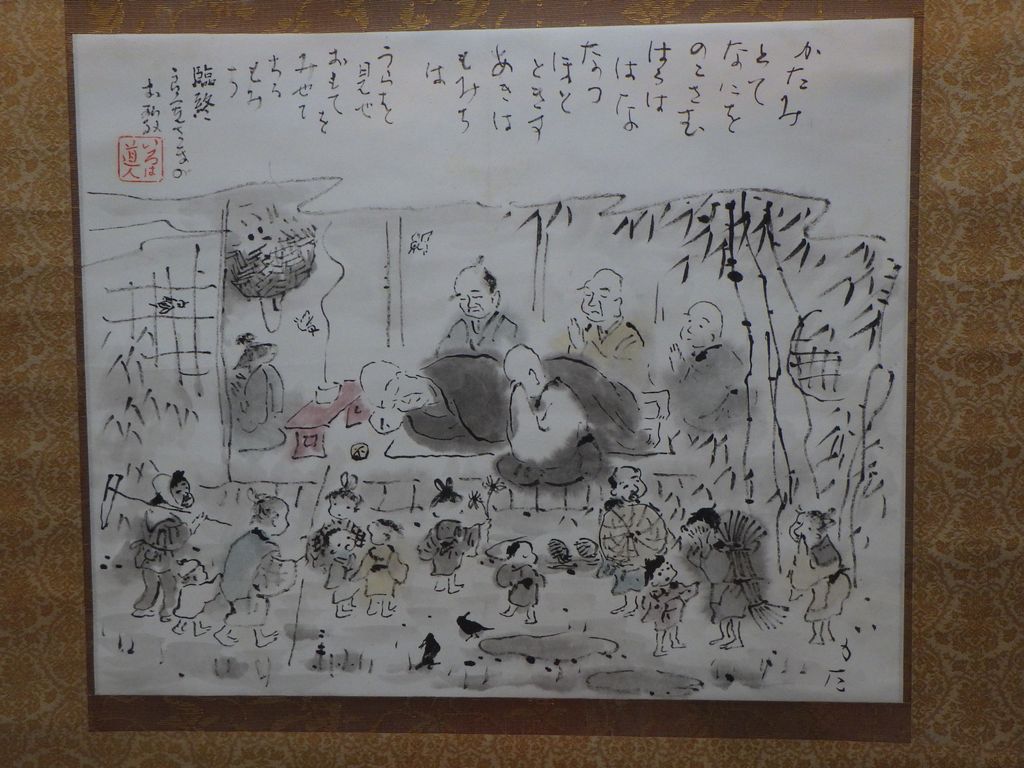 かたみ
とて
なにを
のこさむ
はるは
はな
なつ
ほと
ときす
あきは
もみち
は
うらを
見せ
おもてを
みせて
ちる
もみ
ち
臨終
いろは
道人